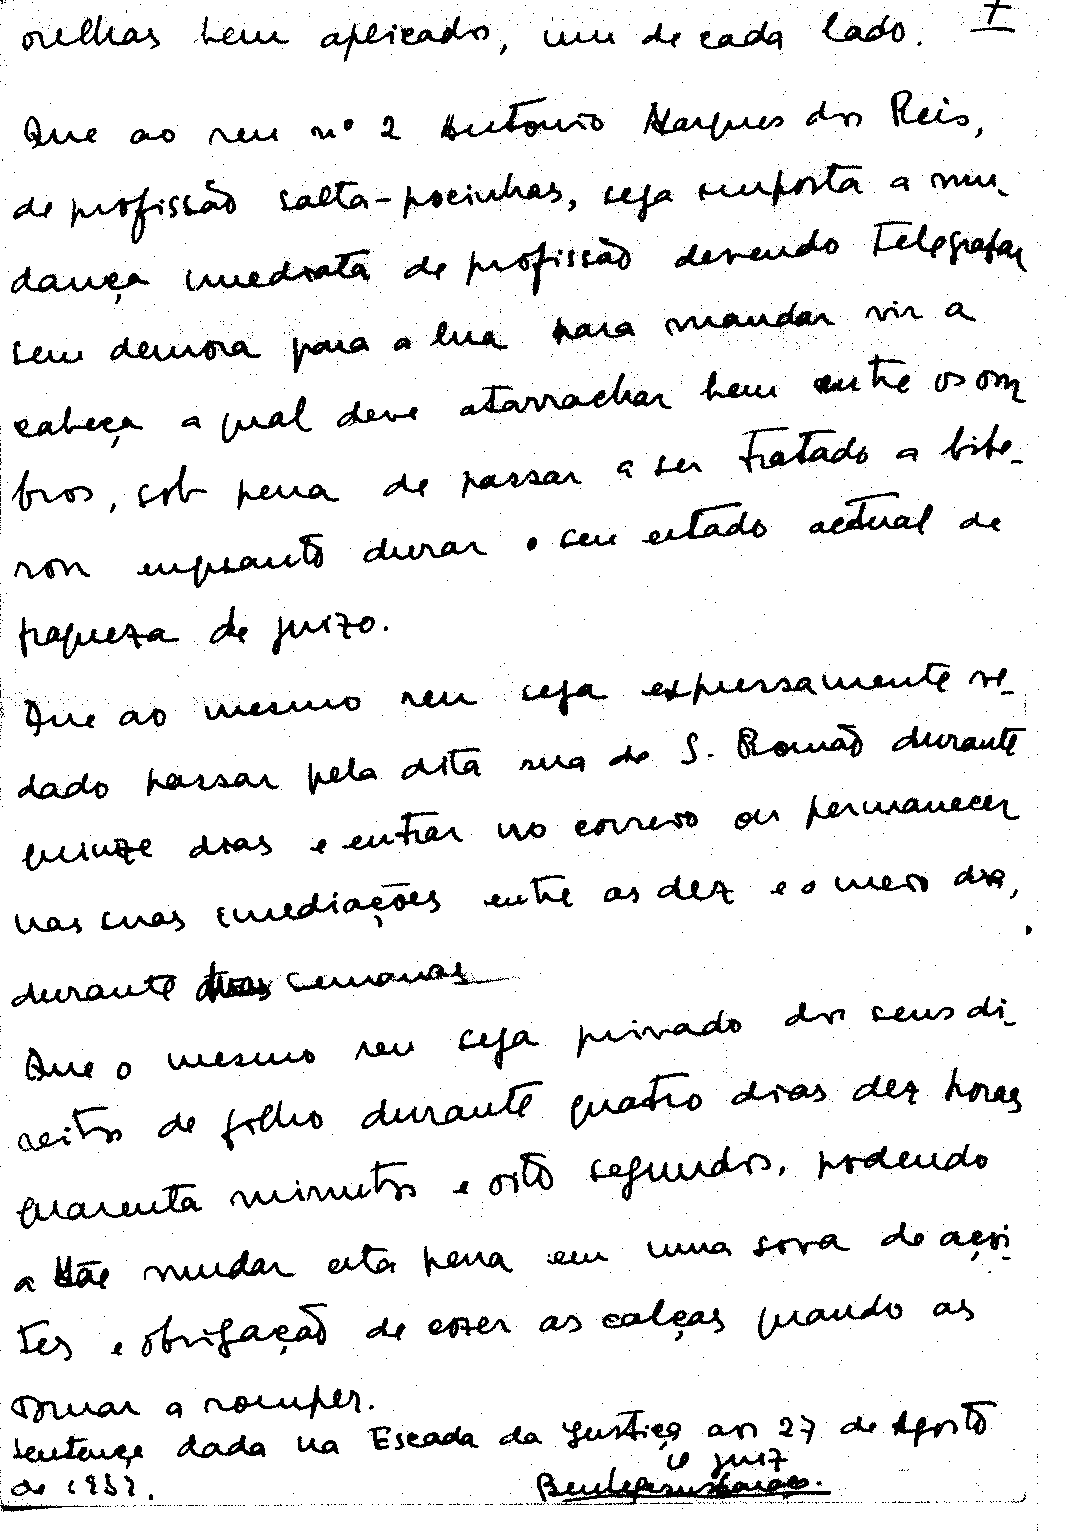 orelhas bem aplicados, um de cada lado. 7
Que ao reu nº 2 Antonio Marques dos Reis,
de profissão salta-pocinhas, seja imposta a mu-
dança imediata de profissão devendo telegrafar
sem demora para a lua para mandar vir a
cabeça a qual deve atarrachar bem entre os om
bros, sob pena de passar a ser tratado a bibe-
ron enquanto durar o seu estado actual de
fraqueza de juizo.
Que ao mesmo reu seja expressamente ve-
dado passar pela dita rua de S. Romão durante
quinze dias e entrar no correio ou permanecer
nas suas imediações entre as dez e o meio dia,
durante semanas
Que o mesmo reu seja privado dos seus di-
reitos de filho durante quatro dias dez horas
quarenta minutos e oito segundos, podendo
a Mãe mudar esta pena em uma sova de açoi-
tes e obrigação de cozer as calças quando as
tornar a romper.
Sentença dada na Escada da Justiça aos 27 de Agosto
de
o juiz